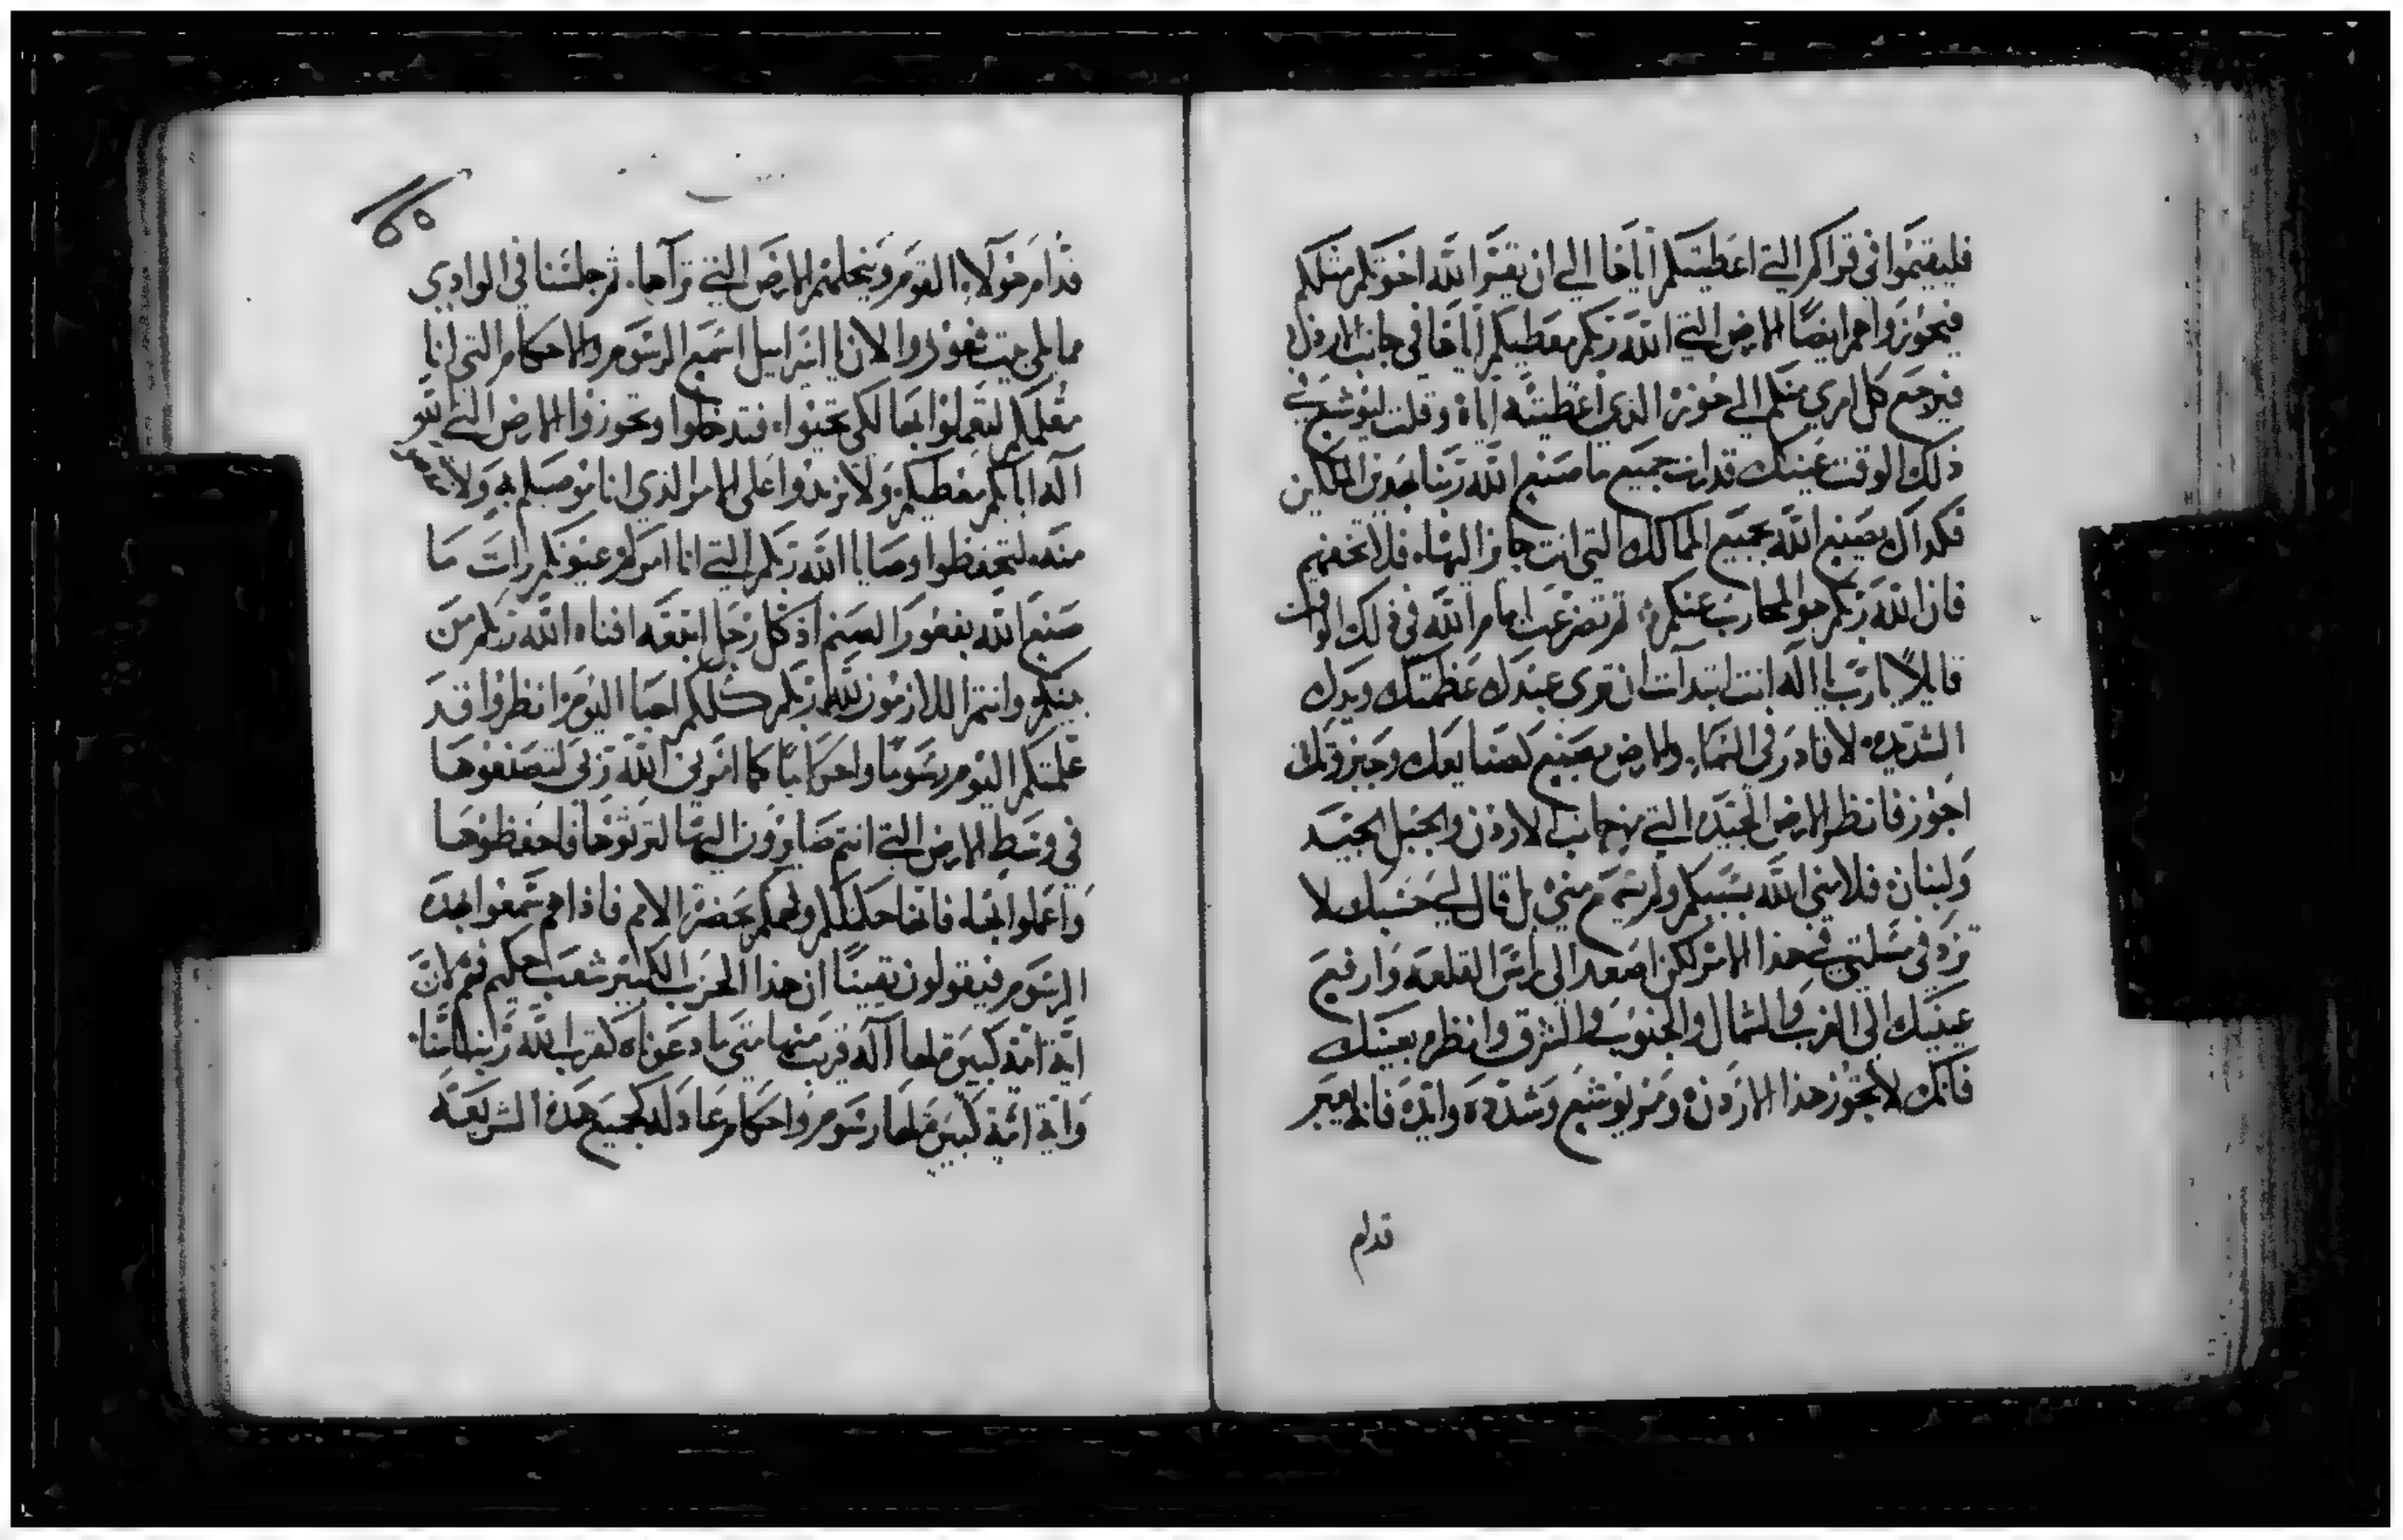 فليقيموا في قراكم التي اعطيتكم اياها الي ان يقر الله اخوتكم مثلكم
فيحوزوا هم ايضًا الارض التي الله ربكم معطيكم اياها في جانب الاردن
فيرجع كل امرئ منكم الي حوزه الذي اعطيته اياه وقلت ليوشع في
ذلك الوقت عينيك قد رات جميع ما صنع الله ربنا بهذين الملكين
فكذاك يصنع الله بجميع الممالك التي انت جايز اليها فلا تخفهم
فان الله ربكم هو المحارب عنكم ثم تضرعت امام الله في ذلك الوقت
قايلًا يا رب يا اله انت ابتدات ان تري عبدك عظمتك ويدك
الشديده لا قادر في السماء والارض يصنع كصنايعك وجبروتك
اجوز فانظر الارض الجيده التي بجانب الاردن والجبل الجيد
ولبنان فلامني الله بسببكم ولم يسمع مني بل قال لي حسبك لا
تزد في مسلتي في هذا الامر لكن اصعد الى راس القلعه وارفع
عينيك الى الغرب والشمال والجنوب والشرق وانظر بعينيك
فانك لا تجوز هذا الاردن ومر يوشع وشدده وايده فانه يعبر
قدام
قدام هولاء القوم وينحلهم الارض التي تراها ثم جلسنا في الوادي
مما يلي بيت فغور والان يا اسراييل اسمع الرسوم والاحكام التي انا
معلمكم لتعملوا بها لكي تحيوا فتدخلوا وتحوزوا الارض التي الله
اله ابايكم معطيكم ولا تزيدوا على الامر الذي انا موصيكم به ولا
منه لتحفظوا وصايا الله ربكم التي انا امركم عيونكم رات ما
صنع الله بفغور الصنم اذ كل رجل اتبعه افناه الله ربكم من
بينكم وانتم اللازمون لله ربكم كلكم احيا اليوم انظروا قد
علمتكم اليوم رسومًا واحكامًا كما امرني الله ربي لتصنعوها
في وسط الارض التي انتم صايرون اليها لترثوها فاحفظوها
واعملوا بها فانها حكمتكم وفهمكم بحضرة الامم فاذا هم سمعوا بهذه
الرسوم فيقولون يقينًا ان هذا الحزب الكبير شعب حكيم فهم لان
اية امة كبيرة لها اله قريب منها متى ما دعوناه كقرب الله ربنا منا
واية امة كبيرة لها رسوم واحكام عادله كجميع هذه الشريعه